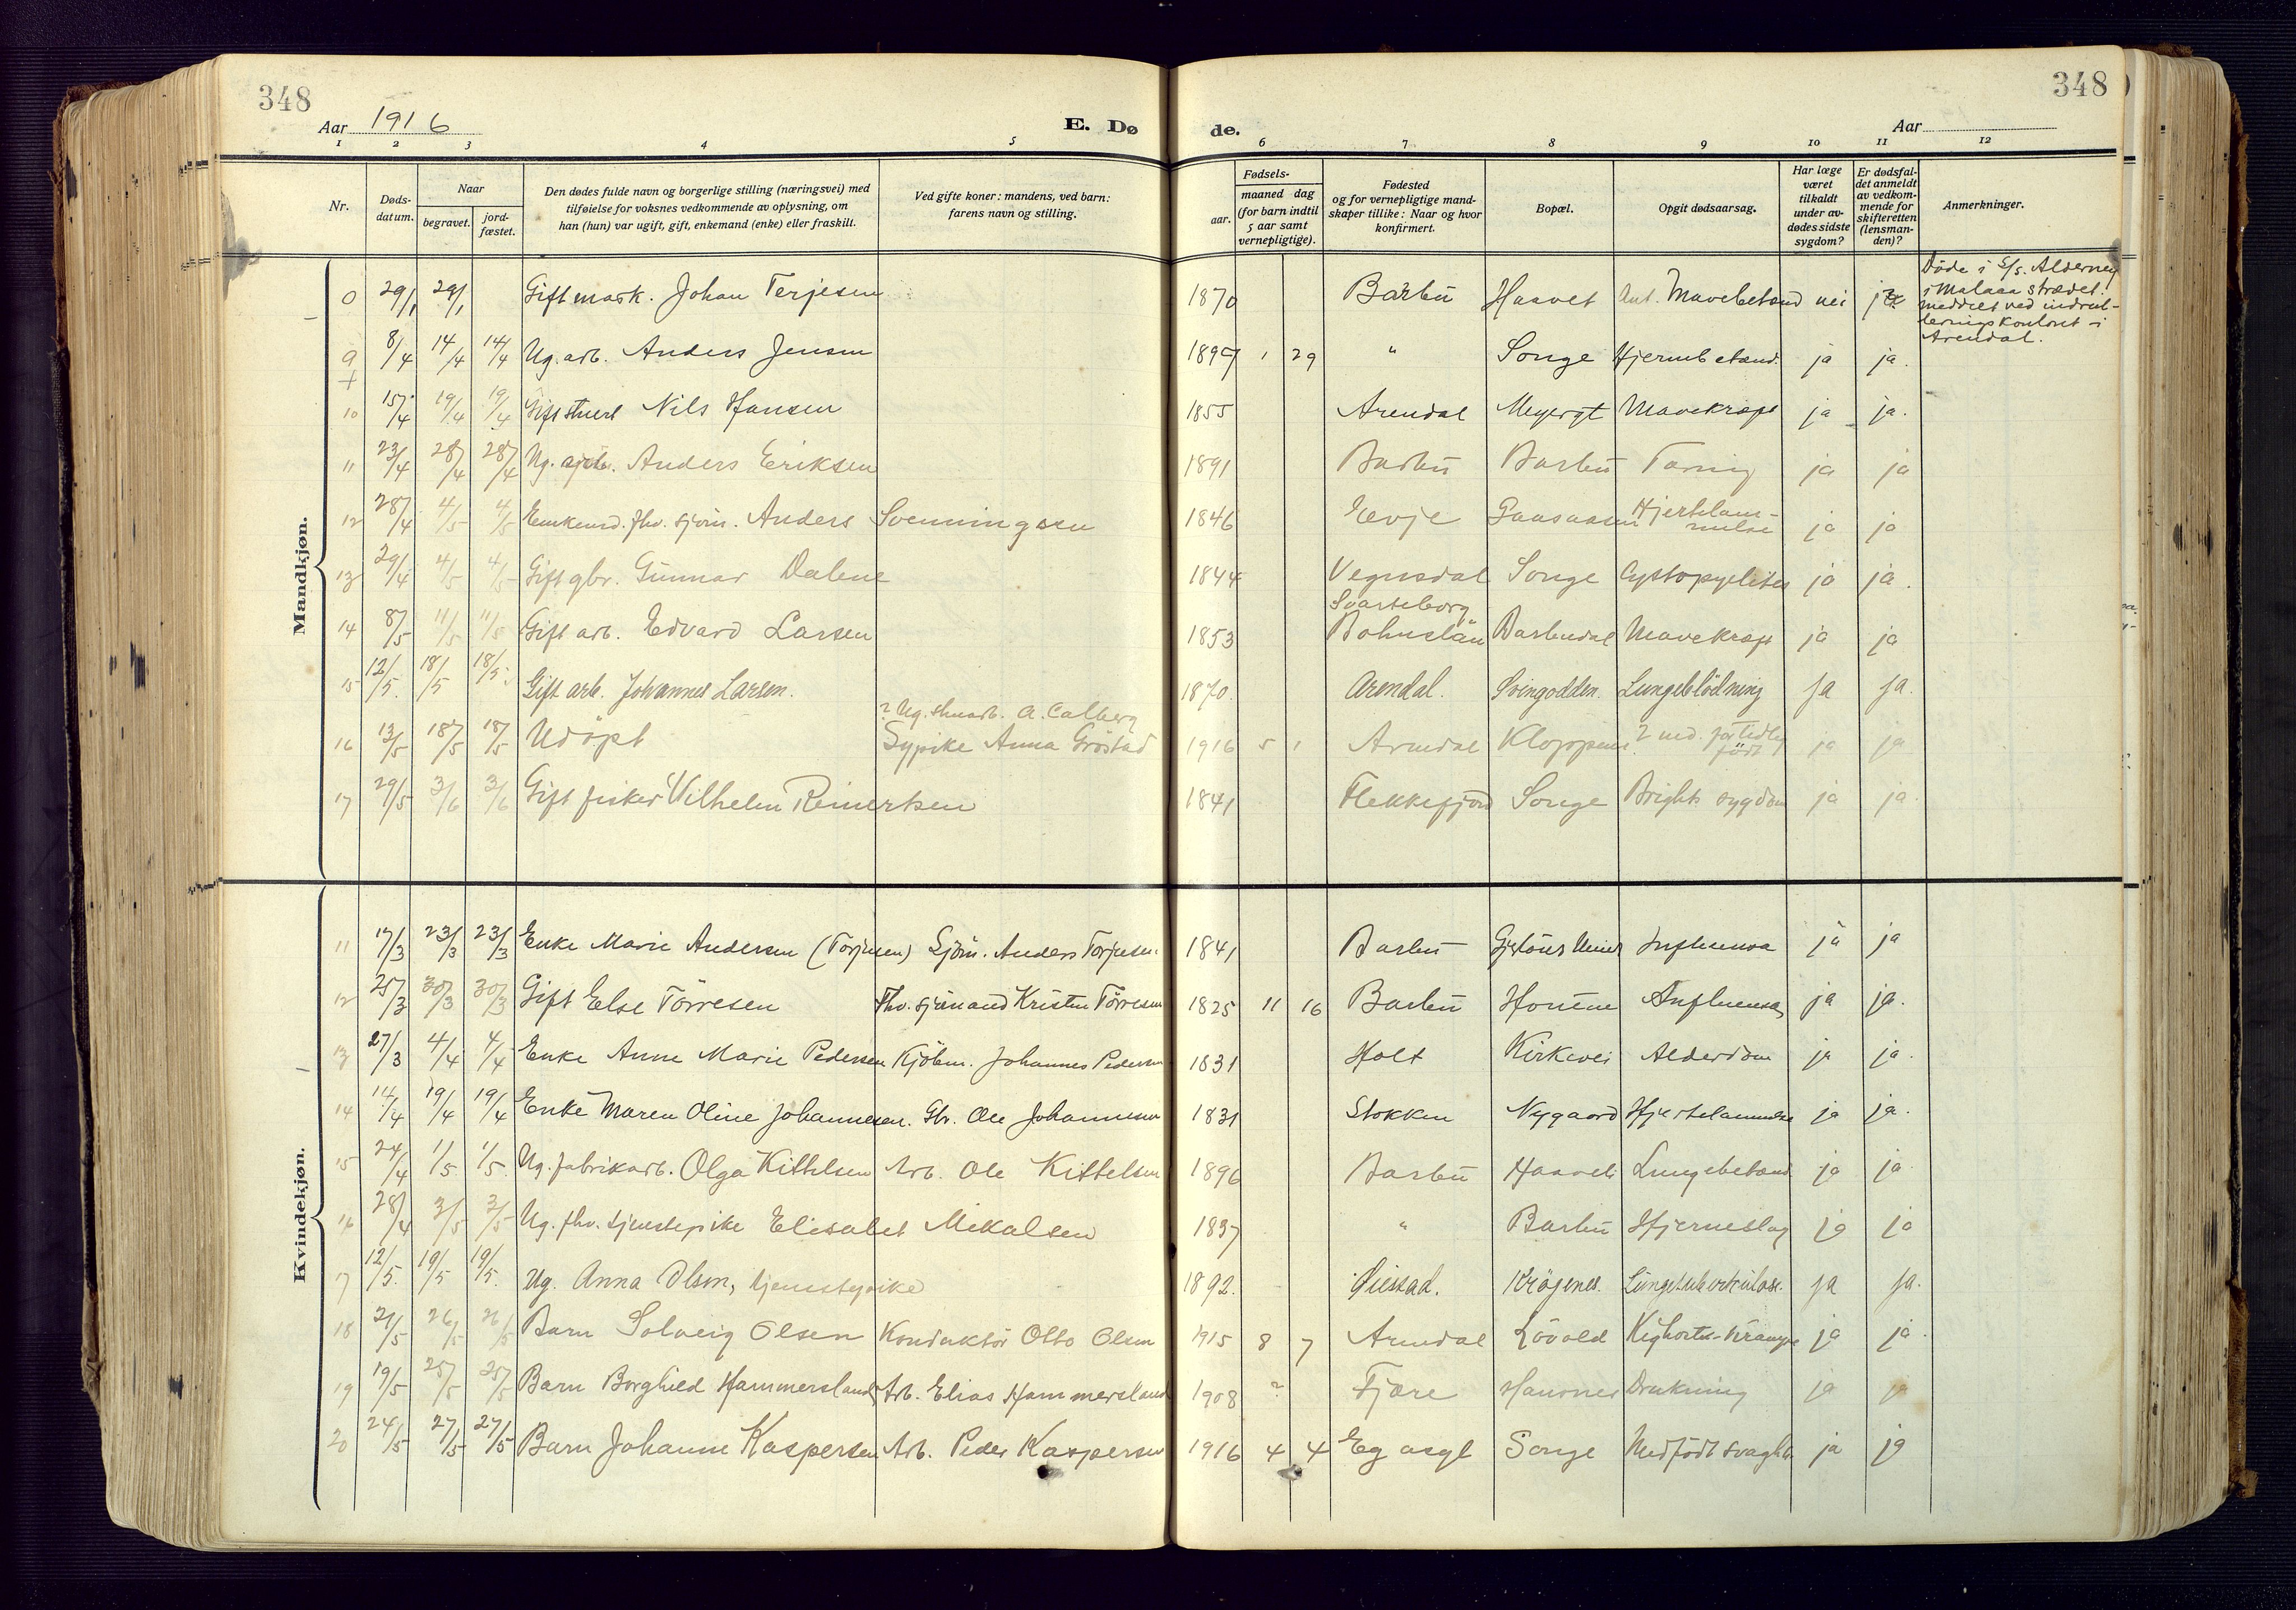 348
348
Aar 1916
E. Dø
de.
Aar
1 2 3 4 5 6 7 8 9 10 11 12
Nr.
Døds-
datum.
Naar
begravet.
jord-
fæstet.
Den dødes fulde navn og borgerlige stilling (næringsvei) med
tilføielse for voksnes vedkommende av oplysning, om
han (hun) var ugift, gift, enkemand (enke) eller fraskilt.
Ved gifte koner: mandens, ved barn:
farens navn og stilling.
Fødsels-
aar.
maaned dag
(for barn indtil
5 aar samt
vernepligtige).
Fødested
og for vernepligtige mand-
skaper tillike: Naar og hvor
konfirmert.
Bopæl.
Opgit dødsaarsag.
Har læge
været
tilkaldt
under av-
dødes sidste
sygdom?
Er dødsfal-
det anmeldt
av vedkom-
mende for
skifteretten
(lensman-
den)?
Anmerkninger.
Mandkjøn.
0 29/1 29/1 Gift mask. Johan Terjesen 1870 Barbu Haavet Ant. Mavebetænd nei ja
Døde i S/S. Alderney
i Malaca strædet.
meddelt ved indrul-
leringskontoret i
Arendal.
9 8/4 14/4 14/4 Ug. arb. Anders Jensen 1899 1 29 " Songe Hjernebetænd. ja ja.
+
10 15/4 19/4 19/4 Gift stuert Nils Hansen 1855 Arendal Myrgt Mavekræft ja ja.
11 23/4 28/4 28/4 Ug. Anders Eriksen 1891 Barbu Barbu Tæring ja ja
12 28/4 4/5 4/5 Enkemd. fhv. sjøm. Anders Svenningsen 1846 Evje Gaasaasen Hjertelam-
melse ja ja
13 29/4 4/5 4/5 Gift gbr. Gunnar Dalene 1844 Vegusdal Songe Cystopyelites ja ja.
14 8/5 11/5 11/5 Gift arb. Edvard Larsen 1853 Svarteborg
Bohuslän Barbudal Mavekræft ja ja
15 12/5. 18/5 18/5. Gift arb. Johannes Larsen. 1870. Arendal. Svingodden. Lungeblödning ja ja.
16 13/5 18/5 18/5 Udöpt ? Ug. A. Calberg
Sypike Anna Gröstad 1916 5 1 Arendal Kloppene 2 med. for tidlig
födt ja ja
17 29/5 3/6 3/6 Gift fisker Vilhelm Reinertsen 1841 Flekkefjord Songe Brights sygdom ja ja.
Kvindekjøn.
11 17/3 23/3 23/3 Enke Marie Andersen (Torjusen) Sjöm. Anders Torjusen. 1841 Barbu Influensa ja ja
12 25/3 30/3 30/3 Gift Else Törresen Fhv. sjömand Kristen Törresen 1825 11 16 Barbu Influensa ja ja.
13 27/3 4/4 4/4 Enke Anne Marie Pedersen Kjöbm. Johannes Pedersen 1831 Holt Kirkevei Alderdom ja ja.
14 14/4 19/4 19/4 Enke Maren Oline Johannesen. Gbr. Ole Johannesen 1831 Stokken Nygaard Hjertelammelse ja ja.
15 24/4 1/5 1/5 Ug. fabrikarb. Olga Kittelsen Arb. Ole Kittelsen 1896 Barbu Haavet Lungebetænd ja ja
16 28/4 3/5 3/5 Ug. fhv. tjenestepike Elisabet Mikalsen 1837 " Barbu Hjerneslag ja ja
17 12/5. 19/5 19/5. Ug. Anna Olsen, tjenestepike 1892. Öiestad. Krögenes. Lungetuberkulose. ja ja.
18 21/5 26/5 26/5 Barn Solveig Olsen Konduktör Otto Olsen 1915 8 7 Arendal Lövold Kighoste-krampe ja ja.
19 19/5 25/5 25/5 Barn Borghild Hammersland Arb. Elias Hammersland 1908 ? Fjære Drukning ja ja
20 24/5 27/5 27/5 Barn Johanne Kaspersen Arb. Peder Kaspersen 1916 4 4 Eg asyl Songe Medfödt svaghet ja ja